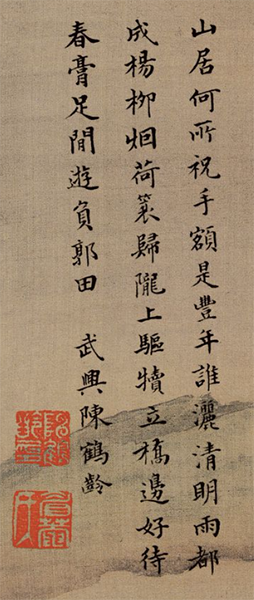 山居何所祝手額是豐年誰灑清明雨都
成楊柳烟荷蓑歸隴上驅犢立橋邊好待
春膏足間遊負郭田 武興陳鶴齡